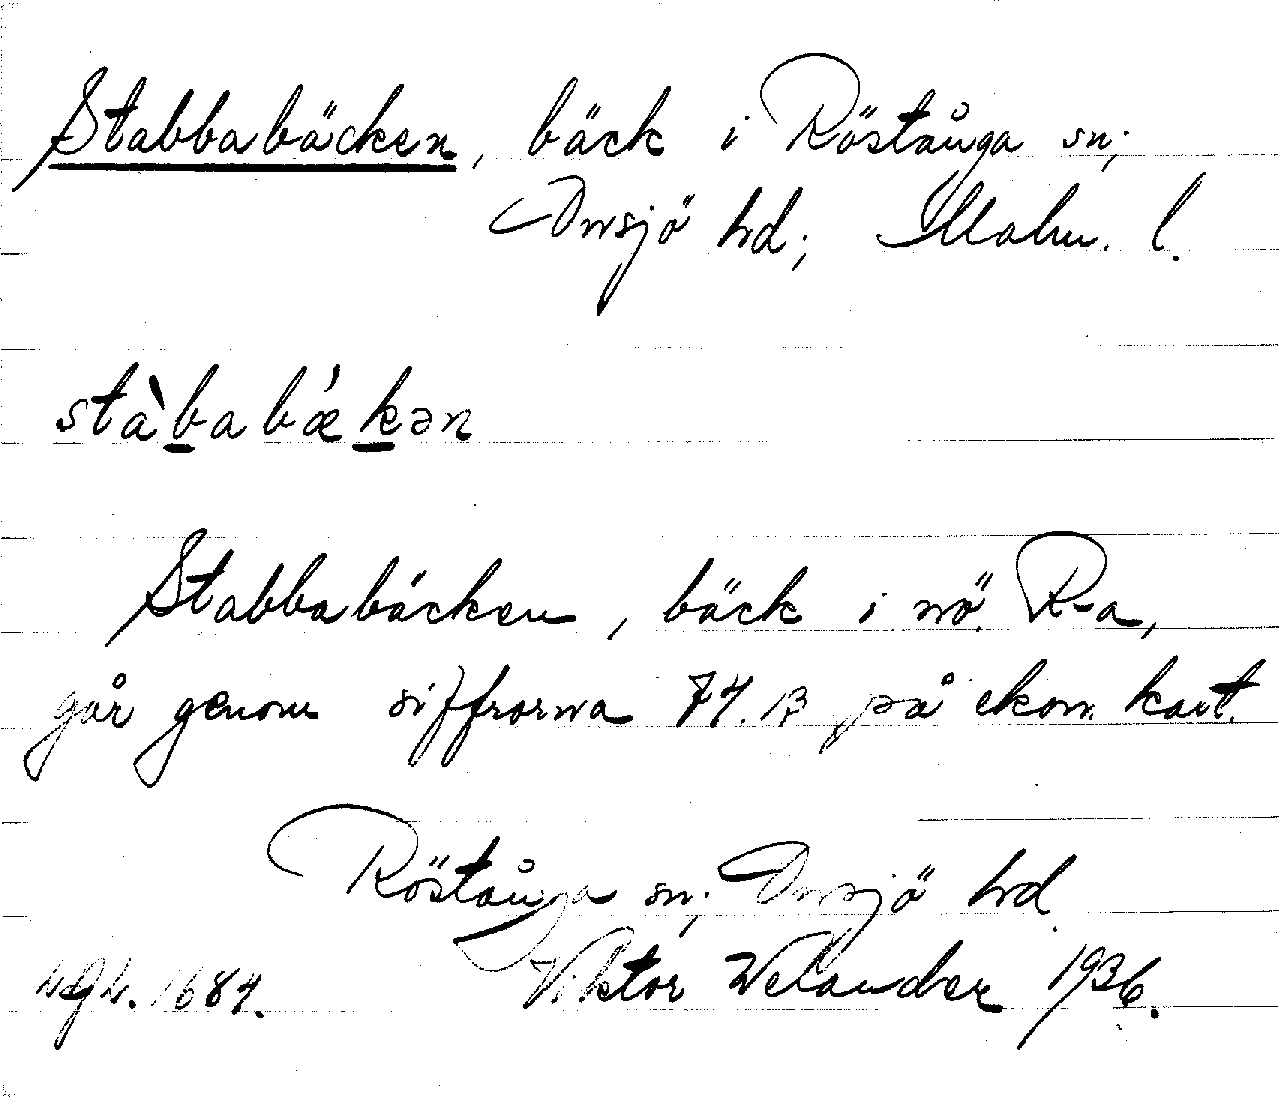 Stabbabäcken, bäck i Röstånga sn;
Onsjö hd; Malm. l.
stàbabǽkən
Stabbabäcken, bäck i nö. R-a,
går genom siffrorna 74. B på ekon. kart.
Röstånga sn; Onsjö hd
Viktor Welander 1936.
1684.